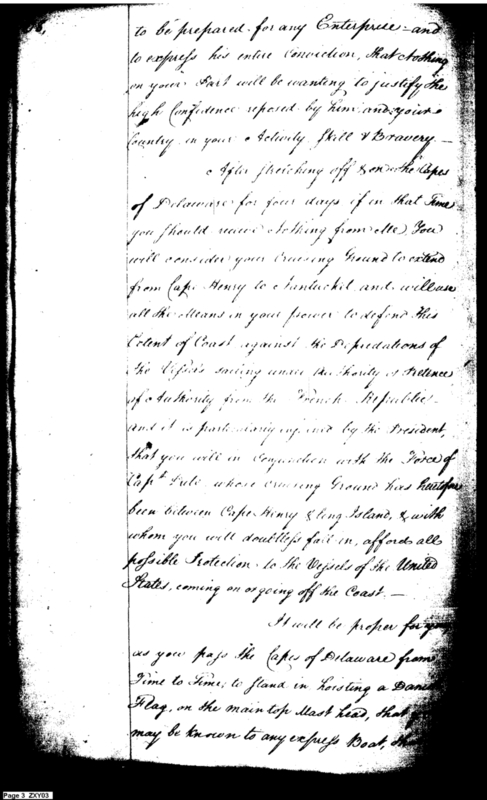 to be prepared for any Enterprise - and
to express his entire Conviction, that Nothing
on your Part will be wanting to justify the
high Confidence reposed by him and your
Country in your Activity Skill & Bravery —
After stretching off & on the Capes
of Delaware for four days if in that Time
you should receive Nothing from Me, You
will consider your Cruising Ground to extend
from Cape Henry to Nantucket and will use
all the Means in your power to defend this
Extent of Coast against the Depredations of
the Vessels sailing under the Authority or Pretence
of Authority from the French Republic -
and it is particularly enjoined by the President,
that you will in Conjunction with the Force of
Capt. whose Cruising Ground has heretofore
been between Cape Henry & Long Island, & with
whom you will doubtless fall in, afford all
possible Protection to the Vessels of the United
States, coming on or going off the Coast. —
It will be proper for you
as you pass the Capes of Delaware from
Time to Time, to stand in hoisting a
Flag, on the main top Mast head, that
may be known to any express Boat,
Page 3 ZXY03